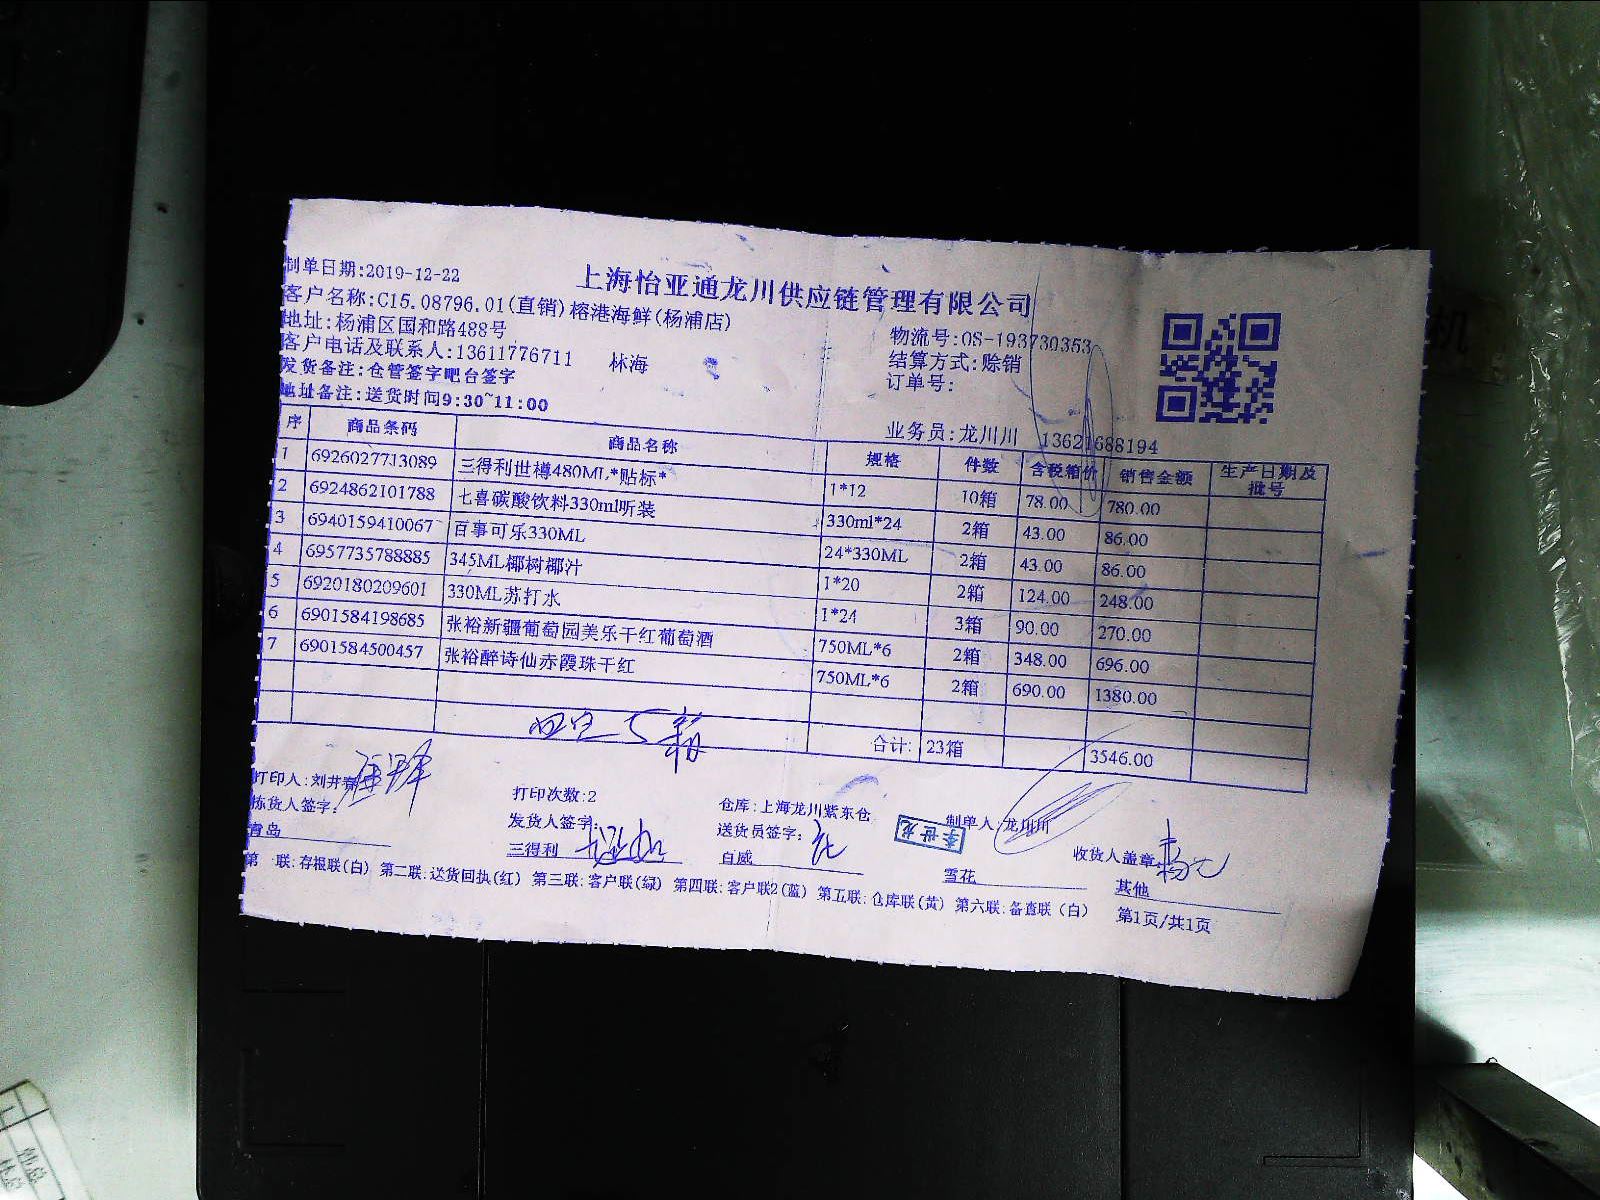 上海怡亚通龙川供应链管理有限公司
制单日期:2019-12-22
客户名称:C15.08796.01(直销)榕港海鲜(杨浦店)
地址:杨浦区国和路488号
物流号:OS-193730353
客户电话及联系人:13611776711 林海
结算方式:赊销
发货备注:仓管签字吧台签字
订单号:
地址备注:送货时间9:30~11:00
业务员:龙川川 13621688194
序 商品条码 商品名称 规格 件数 含税箱价 销售金额 生产日期及批号
1 6926027713089 三得利世樽480ML*贴标* 1*12 10箱 78.00 780.00
2 6924862101788 七喜碳酸饮料330ml听装 330ml*24 2箱 43.00 86.00
3 6940159410067 百事可乐330ML 24*330ML 2箱 43.00 86.00
4 6957735788885 345ML椰树椰汁 1*20 2箱 124.00 248.00
5 6920180209601 330ML苏打水 1*24 3箱 90.00 270.00
6 6901584198685 张裕新疆葡萄园美乐干红葡萄酒 750ML*6 2箱 348.00 696.00
7 6901584500457 张裕醉诗仙赤霞珠干红 750ML*6 2箱 690.00 1380.00
合计: 23箱 3546.00
打印人:刘井 打印次数:2 仓库:上海龙川紫东仓 制单人:龙川川
拣货人签字: 发货人签字: 送货员签字: 李世龙 收货人盖章:
青岛 三得利 百威 雪花 其他
第一联:存根联(白) 第二联:送货回执(红) 第三联:客户联(绿) 第四联:客户联2(蓝) 第五联:仓库联(黄) 第六联:备查联(白) 第1页/共1页